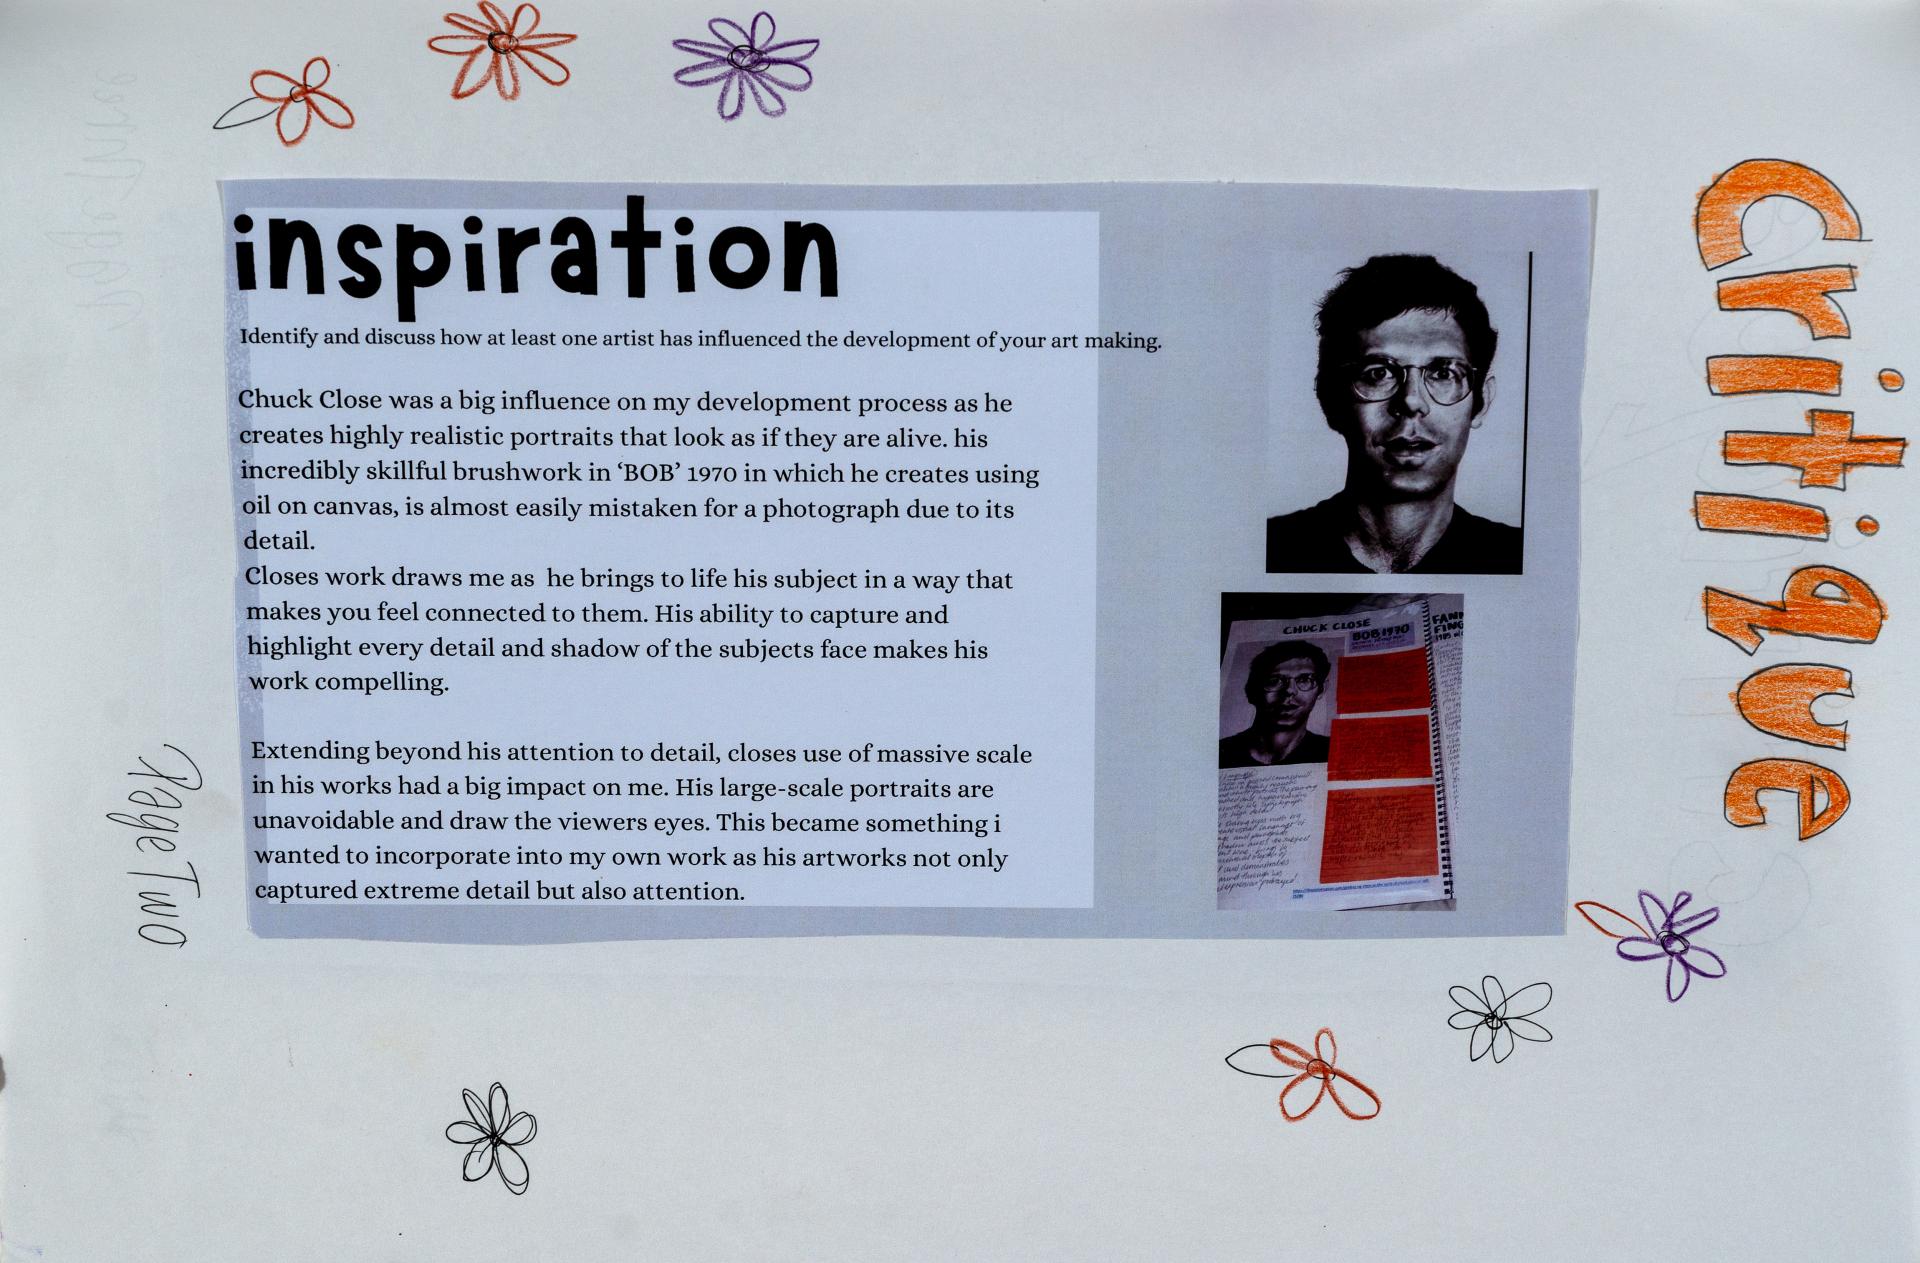 inspiration
Identify and discuss how at least one artist has influenced the development of your art making.
Chuck Close was a big influence on my development process as he
creates highly realistic portraits that look as if they are alive. his
incredibly skillful brushwork in ‘BOB’ 1970 in which he creates using
oil on canvas, is almost easily mistaken for a photograph due to its
detail.
Closes work draws me as  he brings to life his subject in a way that
makes you feel connected to them. His ability to capture and
highlight every detail and shadow of the subjects face makes his
work compelling.
Extending beyond his attention to detail, closes use of massive scale
in his works had a big impact on me. His large-scale portraits are
unavoidable and draw the viewers eyes. This became something i
wanted to incorporate into my own work as his artworks not only
captured extreme detail but also attention.
CHUCK CLOSE
BOB 1970
Critique
Page Two